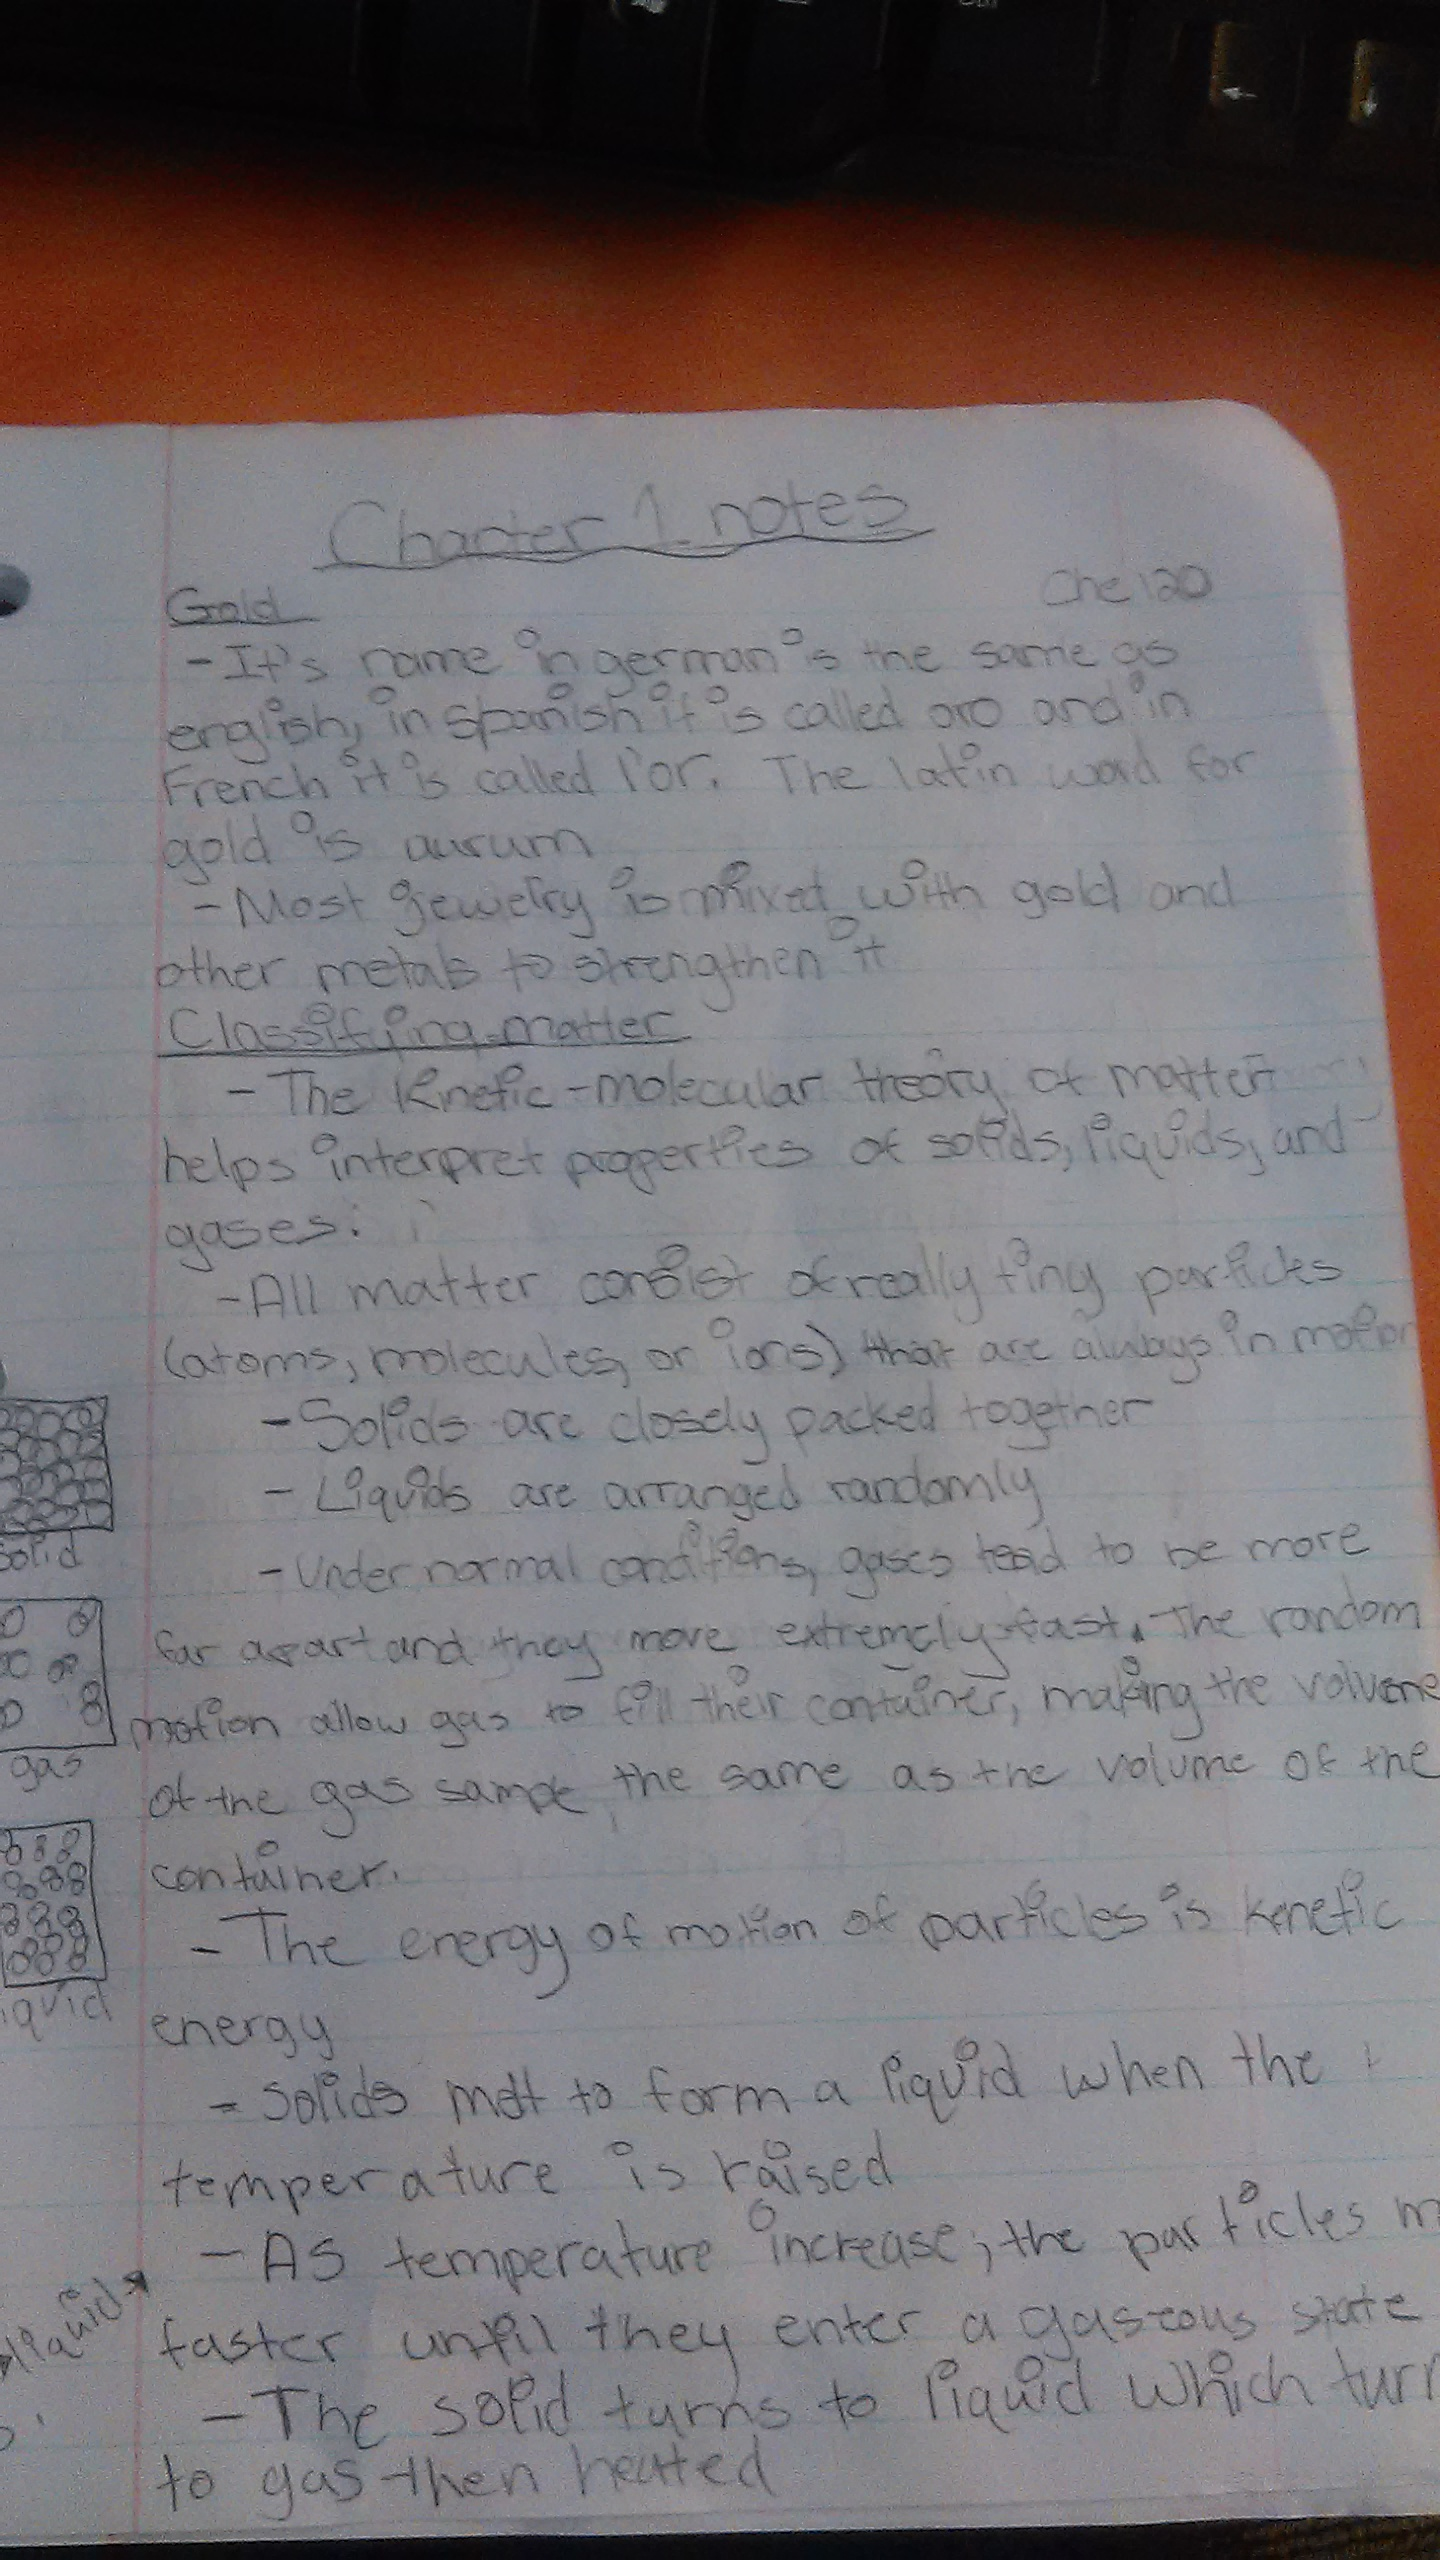 Chapter 1 notes
Che 120
Gold
- It's name in german is the same as
english, in spanish it is called oro and in
French it is called l'or. The latin word for
gold is aurum
- Most jewelry is mixed with gold and
other metals to strengthen it
Classifying matter
- The Kinetic-molecular theory of matter
helps interpret properties of solids, liquids, and
gases:
- All matter consist of really tiny particles
(atoms, molecules, or ions) that are always in motion
- Solids are closely packed together
- Liquids are arranged randomly
- Under normal conditions, gases tend to be more
far apart and they move extremely fast. The random
motion allow gas to fill their container, making the volume
of the gas sample the same as the volume of the
container.
- The energy of motion of particles is kenetic
energy
- Solids melt to form a liquid when the
temperature is raised
- As temperature increase, the particles m
faster until they enter a gaseous state
- The solid turns to liquid which turn
to gas then heated
solid
gas
iquid
liquid